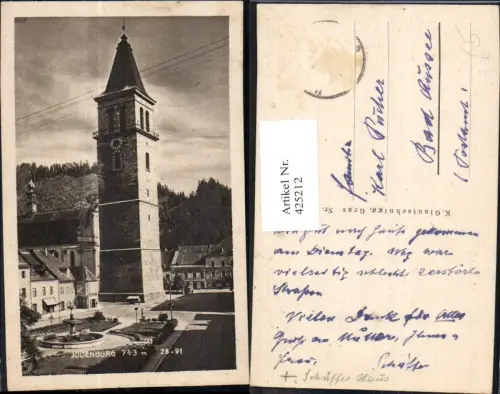 JUDENBURG 743 m 28-91
Artikel Nr.
425212
Familie
Karl Pucher
Bad Aussee
(Postamt)
K. Glantschnigg, Graz Nr.
gut nach Hause gekommen
am Dienstag. Weg war
vielseitig schlecht zerstörte
Strassen
Vielen Dank für Alles
Gruß an Mutter, Ihnen
Frau, Schäffer
+ Schäffer Haus